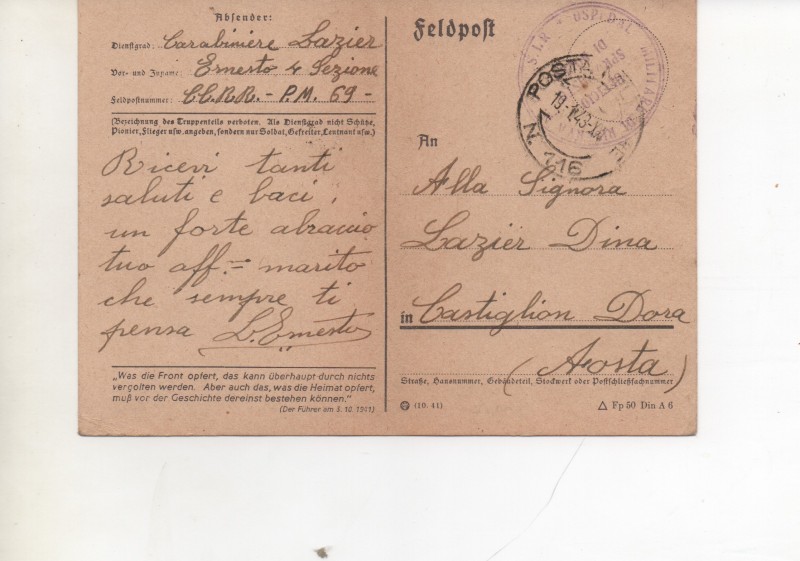 Absender:
Dienstgrad: Carabiniere Lazier
Vor- und Zuname: Ernesto 4 Sezione
Feldpostnummer: CC.RR.- P.M. 69 -
(Bezeichnung des Truppenteils verboten. Als Dienstgrad nicht Schütze,
Pionier, Flieger usw. angeben, sondern nur Soldat, Gefreiter, Leutnant usw.)
Ricevi tanti
saluti e baci,
un forte abraccio
tuo aff.= marito
che sempre ti
pensa L. Ernesto
„Was die Front opfert, das kann überhaupt durch nichts
vergolten werden. Aber auch das, was die Heimat opfert,
muß vor der Geschichte dereinst bestehen können."
(Der Führer am 3. 10. 1941)
Feldpost
OSPEDAL MILITARE DI
POSTA
N. 116
An
Alla Signora
Lazier Dina
in Castiglion Dora
(Aosta)
Straße, Hausnummer, Gebäudeteil, Stockwerk oder Postschließfachnummer
(10. 41)
△ Fp 50 Din A 6